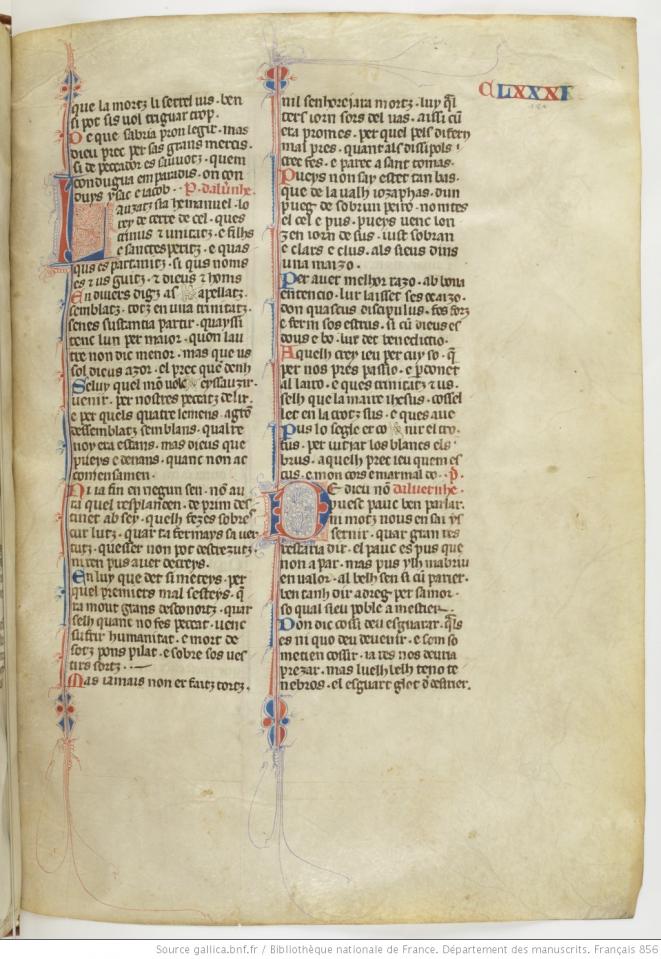 CLXXXI
que la mortz li serrel uis. ben
si pot sis uol triguar trop.
De que sabria pron legir. mas
dieu prec per sas grans merces.
si de peccador es sauuotz. quem
condugua em paradis. on con
duys ysac e iacob. P. daluernhe.
Lauzatz sia hemanuel. lo
rey de terre de cel. ques
trinus & unitatz. e filhs
e sanctesperitz. e quas
En diuers digz as apellatz.
semblatz. totz en una trinitatz.
senes sustancia partir. quayssi
tenc lun per maior. quon lau
tre non dic menor. mas que us
sol dieus azor. el prec que denh
uenir. per nostres peccatz delir.
e per quels quatre lemens.
dessemblatz semblans. qualre
noy era estans. mas dieus que
pueys e denans. quanc non ac
comensamen.
Ni ia fin en negun sen. non au
ra quel resplanden. de prim des
tinet ab sey. quelh fezes sobre
cur lutz. quar ta fermays sa uer
tatz. quesser non pot destrezutz.
ni ren pus auer decreys.
En luy que det si meteys. per
quel premiers mal sesteys. q
ra mout grans desconortz. quar
selh quanc no fes peccat. uenc
sufrir humanitat. e mort de
sotz pons pilat. e sobre sos ues
tirs sortz.
Mas iamais non er faitz tortz.
nil senhoreiara mortz. luy
ters iorn sors del uas. aissi cu
era promes. per quel pels
mal pres. quant als dissipols
cree fes. e parec a sant tomas.
Pueys non say estet tan bas
que de la ualh iozaphas. dun
pueg de sobrun peiro. no mtes
el cel e pus. pueys uenc lon
zen iorn de sus. iust sobran
e clars e clus. als sieus dins
una maizo.
Per auer melhor razo. ab bona
entencio. lur laisset ses ocaizo.
don quascus discipulus. fos fortz
e ferm sos estrus. si cu dieus es
dous e bo. lur det benedictio.
Aquelh crey ieu per cuy so. q
per nos pres passio. e perdonet
al lairo. e ques trinitatz & us.
selh que la maire ihesus. cossel
let en la crotz sus. e ques aue
Pus lo segle er co nir el cro.
tus. per uitiar los blancs els
brus. a aquelh prec ieu quem es
cus. e mon cors e marmal do. P.
De dieu no daluernhe.
puesc pauc ben parlar.
un motz nous en sai ys
sernir. quar gran res
restaria dir. el pauc es pus que
non a par. mas pus ylh mabriu
en ualor. al belh sen si cu paruer.
ben tanh dir adreg per samor.
so qual sieu poble a mestier.
Don dic cossi deu esguarar. quals
es ni quo deu deuenir. e sem so
metien cossir. ia res nos deuria
prezar. mas luelh belh teno te
nebros. el esguart glot destrier.
Source gallica.bnf.fr / Bibliothèque nationale de France. Département des manuscrits. Français 856